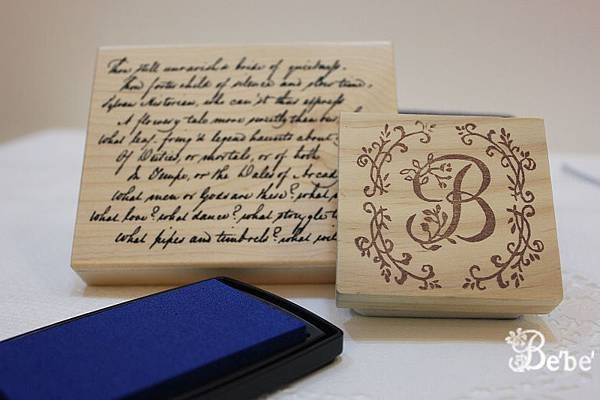 Thou still unravish'd bride of quietness,
Thou foster child of silence and slow time,
Sylvan Historian, who can'st thus express
A flowery tale more sweetly than
What leaf-fring'd legend haunts about
Of Deities, or mortals, or of both
In Tempe, or the Dales of Arcad
What men or Gods are these? what
What love? what dance? what struggle t
What pipes and timbrels? what
B
Be'be'